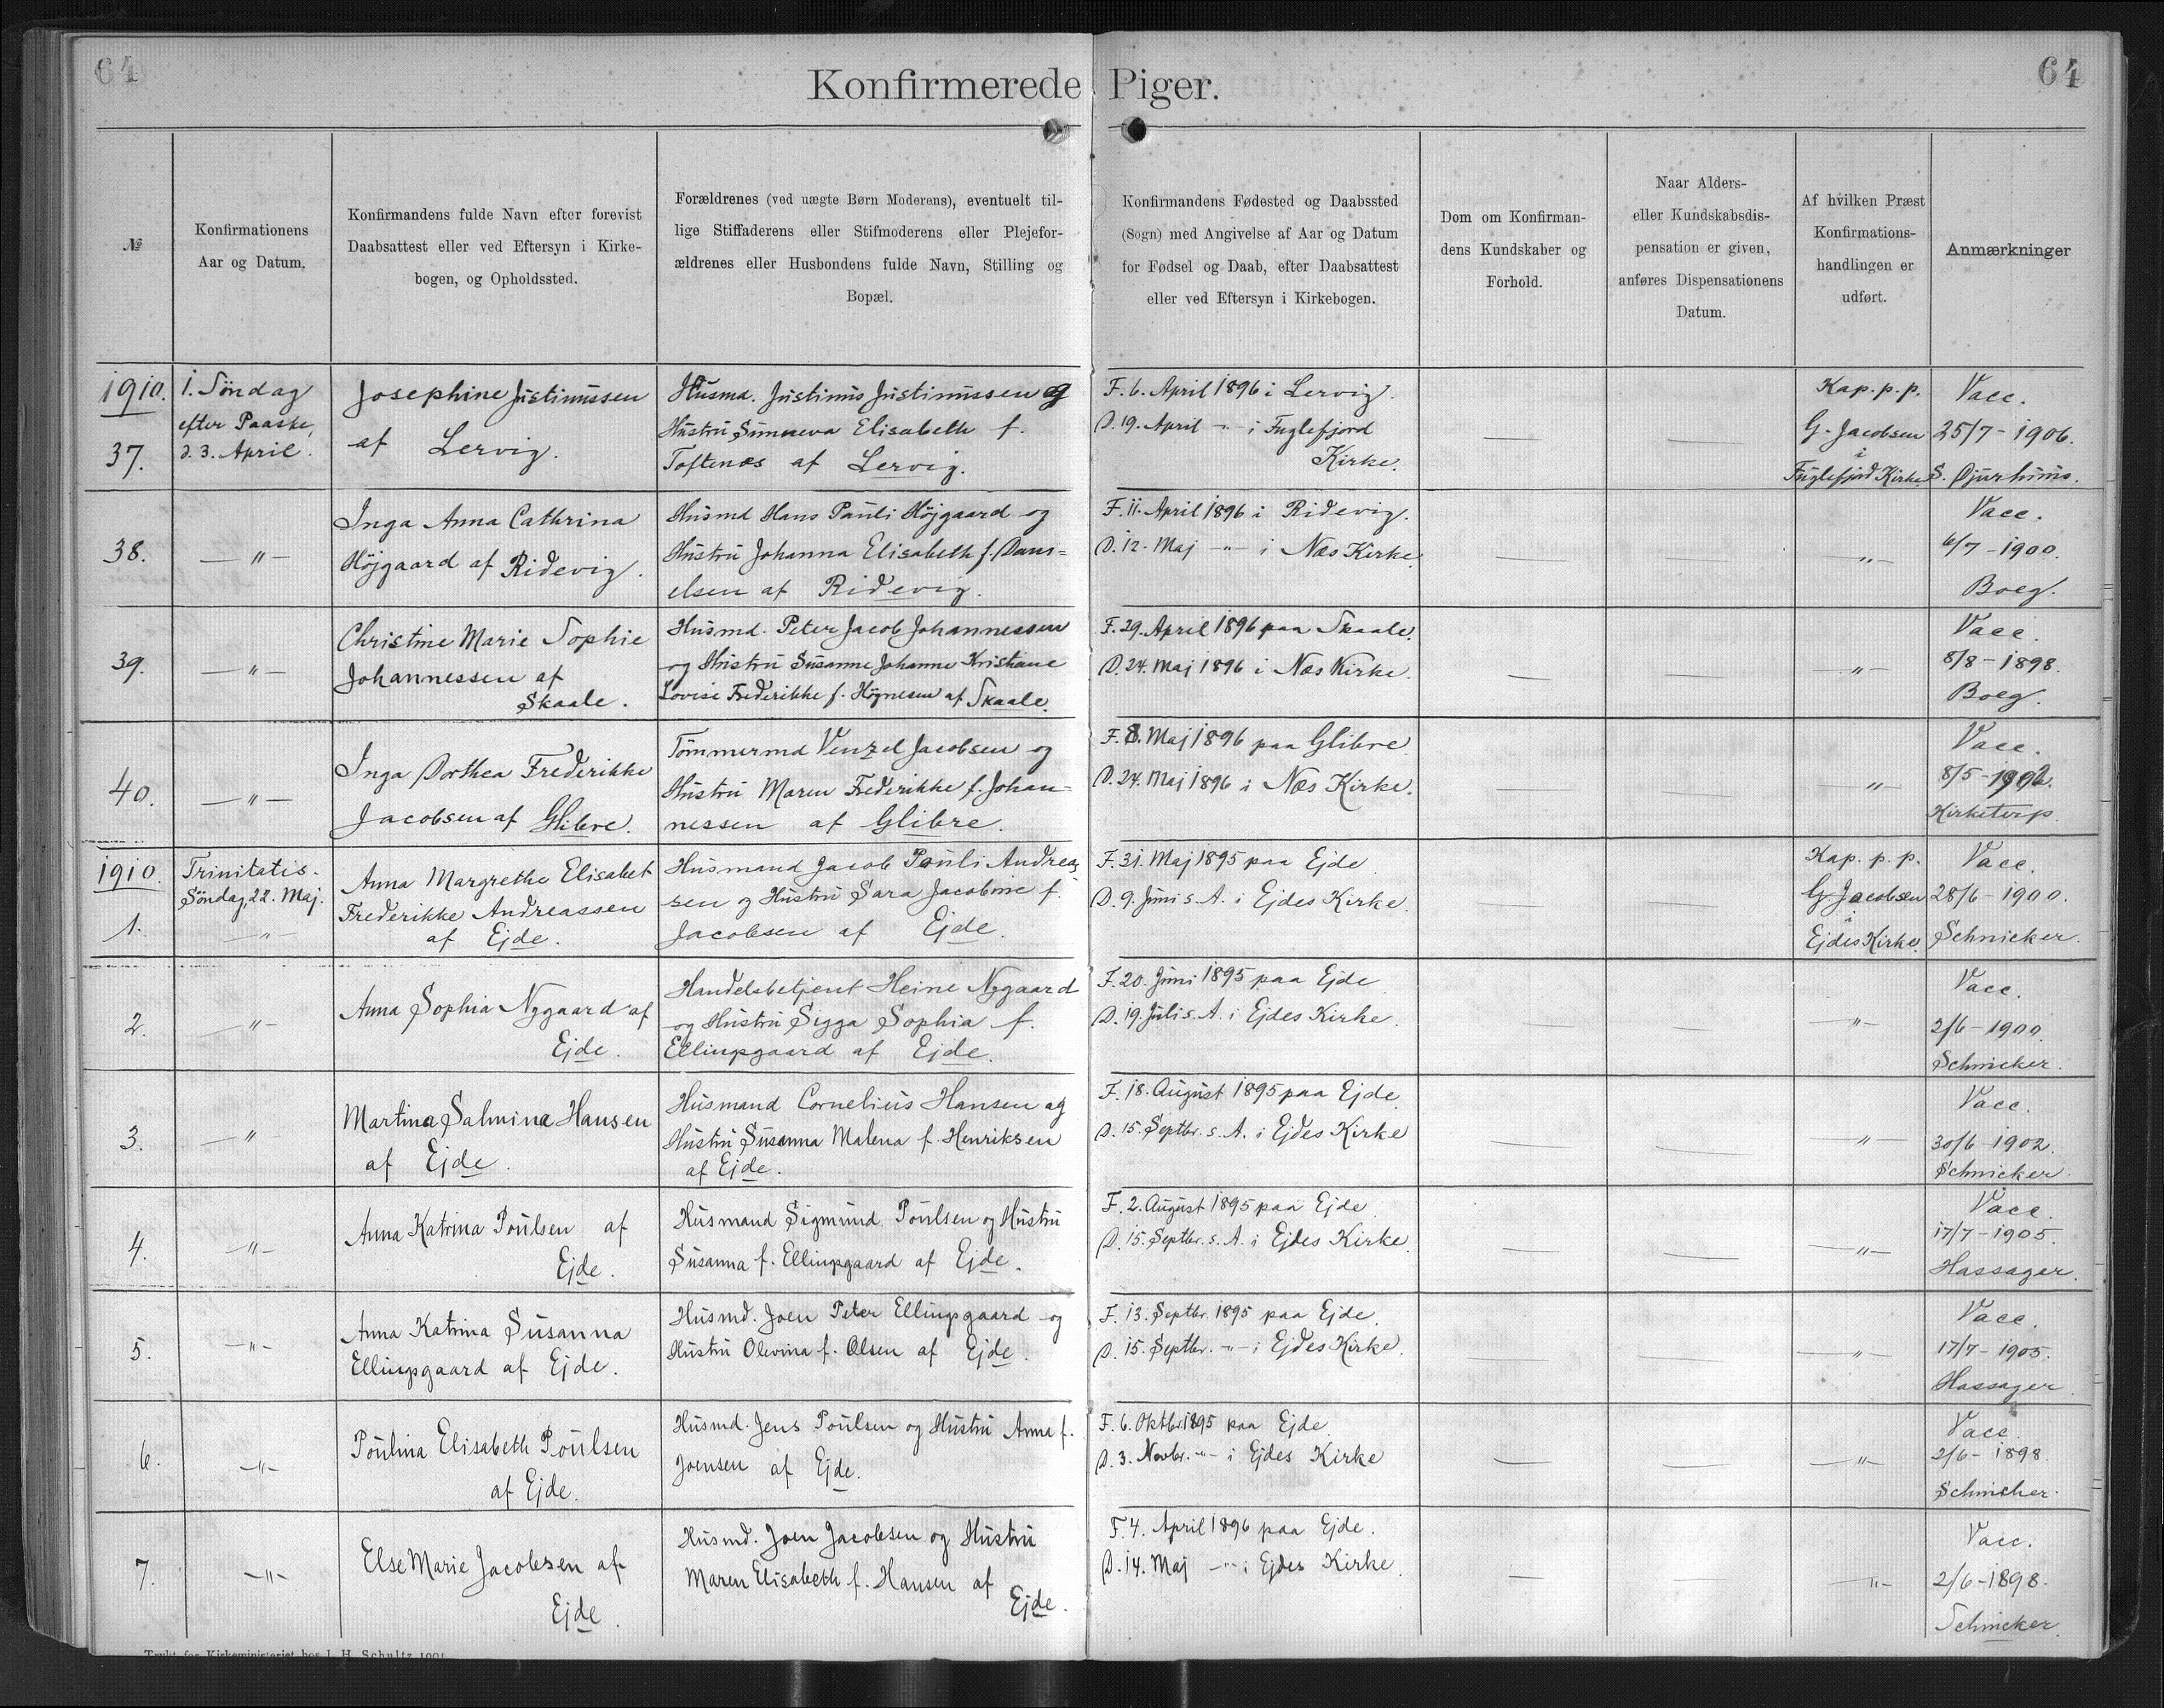 64
64
Konfirmerede Piger.
№
Konfirmationens
Aar og Datum.
Konfirmandens fulde Navn efter forevist
Daabsattest eller ved Eftersyn i Kirke-
bogen, og Opholdssted.
Forældrenes (ved uægte Børn Moderens), eventuelt til-
lige Stiffaderens eller Stifmoderens eller Plejefor-
ældrenes eller Husbondens fulde Navn, Stilling og
Bopæl.
Konfirmandens Fødested og Daabssted
(Sogn) med Angivelse af Aar og Datum
for Fødsel og Daab, efter Daabsattest
eller ved Eftersyn i Kirkebogen.
Dom om Konfirman-
dens Kundskaber og
Forhold.
Naar Alders-
eller Kundskabsdis-
pensation er given,
anføres Dispensationens
Datum.
Af hvilken Præst
Konfirmations-
handlingen er
udført.
Anmærkninger
1910.
37.
1. Söndag
efter Paaske,
d. 3. April.
Josephine Justinussen
af Lervig.
Husmd. Justinus Justinussen og
Hustru Sunneva Elisabeth f.
Toftenæs af Lervig.
F. 6. April 1896 i Lervig.
D. 19. April -"- i Fuglefjord
Kirke.
Kap. p. p.
G. Jacobsen
i
Fuglefjord Kirke
Vacc.
25/7 - 1906.
S. Djurhuus.
38.
-"-
Inga Anna Cathrina
Höjgaard af Ridevig.
Husmd Hans Pauli Höjgaard og
Hustru Johanna Elisabeth f. Dani=
elsen af Ridevig.
F. 11. April 1896 i Ridevig.
D. 12. Maj -"- i Næs Kirke.
-"-
Vacc.
6/7 - 1900.
Boeg.
39.
-"-
Christine Marie Sophie
Johannessen af
Skaale.
Husmd. Peter Jacob Johannessen
og Hustru Susanne Johanne Kristiane
Lovise Frederikke f. Högnesen af Skaale.
F. 29. April 1896 paa Skaale.
D. 24. Maj 1896 i Næs Kirke.
-"-
Vacc.
8/8 - 1898.
Boeg.
40.
-"-
Inga Dorthea Frederikke
Jacobsen af Glibre.
Tömmermd Venzel Jacobsen og
Hustru Maren Frederikke f. Johan=
nessen af Glibre.
F. 8. Maj 1896 paa Glibre.
D. 24. Maj 1896 i Næs Kirke.
-"-
Vacc.
8/5 - 1902.
Kirketerp.
1910.
1.
Trinitatis-
Söndag, 22. Maj.
-"-
Anna Margrethe Elisabet
Frederikke Andreassen
af Ejde.
Husmand Jacob Pauli Andreas
sen og Hustru Sara Jacobine f.
Jacobsen af Ejde.
F. 31. Maj 1895 paa Ejde
D. 9. Juni s. A. i Ejdes Kirke.
Kap. p. p.
G. Jacobsen
i
Ejdes Kirke
Vacc.
28/6 - 1900.
Schnicker.
2.
-"-
Anna Sophia Nygaard af
Ejde.
Handelsbetjent Heine Nygaard
og Hustru Sigga Sophia f.
Ellingsgaard af Ejde.
F. 20. Juni 1895 paa Ejde
D. 19. Juli s. A. i Ejdes Kirke.
-"-
Vacc.
2/6 - 1900.
Schnicker.
3.
-"-
Martina Salmina Hansen
af Ejde.
Husmand Cornelius Hansen og
Hustru Susanna Malena f. Henriksen
af Ejde.
F. 18. August 1895 paa Ejde
D. 15. Septbr. s. A. i Ejdes Kirke
-"-
Vacc.
30/6 - 1902.
Schnicker.
4.
-"-
Anna Katrina Poulsen af
Ejde.
Husmand Sigmund Poulsen og Hustru
Susanna f. Ellingsgaard af Ejde.
F. 2. August 1895 paa Ejde
D. 15. Septbr. s. A. i Ejdes Kirke.
-"-
Vacc.
17/7 - 1905.
Hassager.
5.
-"-
Anna Katrina Susanna
Ellingsgaard af Ejde.
Husmd. Joen Peter Ellingsgaard og
Hustru Olevina f. Olsen af Ejde.
F. 13. Septbr. 1895 paa Ejde.
D. 15. Septbr. -"- i Ejdes Kirke.
-"-
Vacc.
17/7 - 1905.
Hassager.
6.
-"-
Poulina Elisabeth Poulsen
af Ejde.
Husmd. Jens Poulsen og Hustru Anna f.
Joensen af Ejde.
F. 6. Oktbr. 1895 paa Ejde.
D. 3. Novbr. -"- i Ejdes Kirke
-"-
Vacc.
2/6 - 1898.
Schnicker.
7.
-"-
Else Marie Jacobsen af
Ejde.
Husmd. Joen Jacobsen og Hustru
Maren Elisabeth f. Hansen af
Ejde.
F. 4. April 1896 paa Ejde.
D. 14. Maj -"- i Ejdes Kirke.
-"-
Vacc.
2/6 - 1898.
Schnicker.
Trykt for Kirkeministeriet hos J. H. Schultz 1901